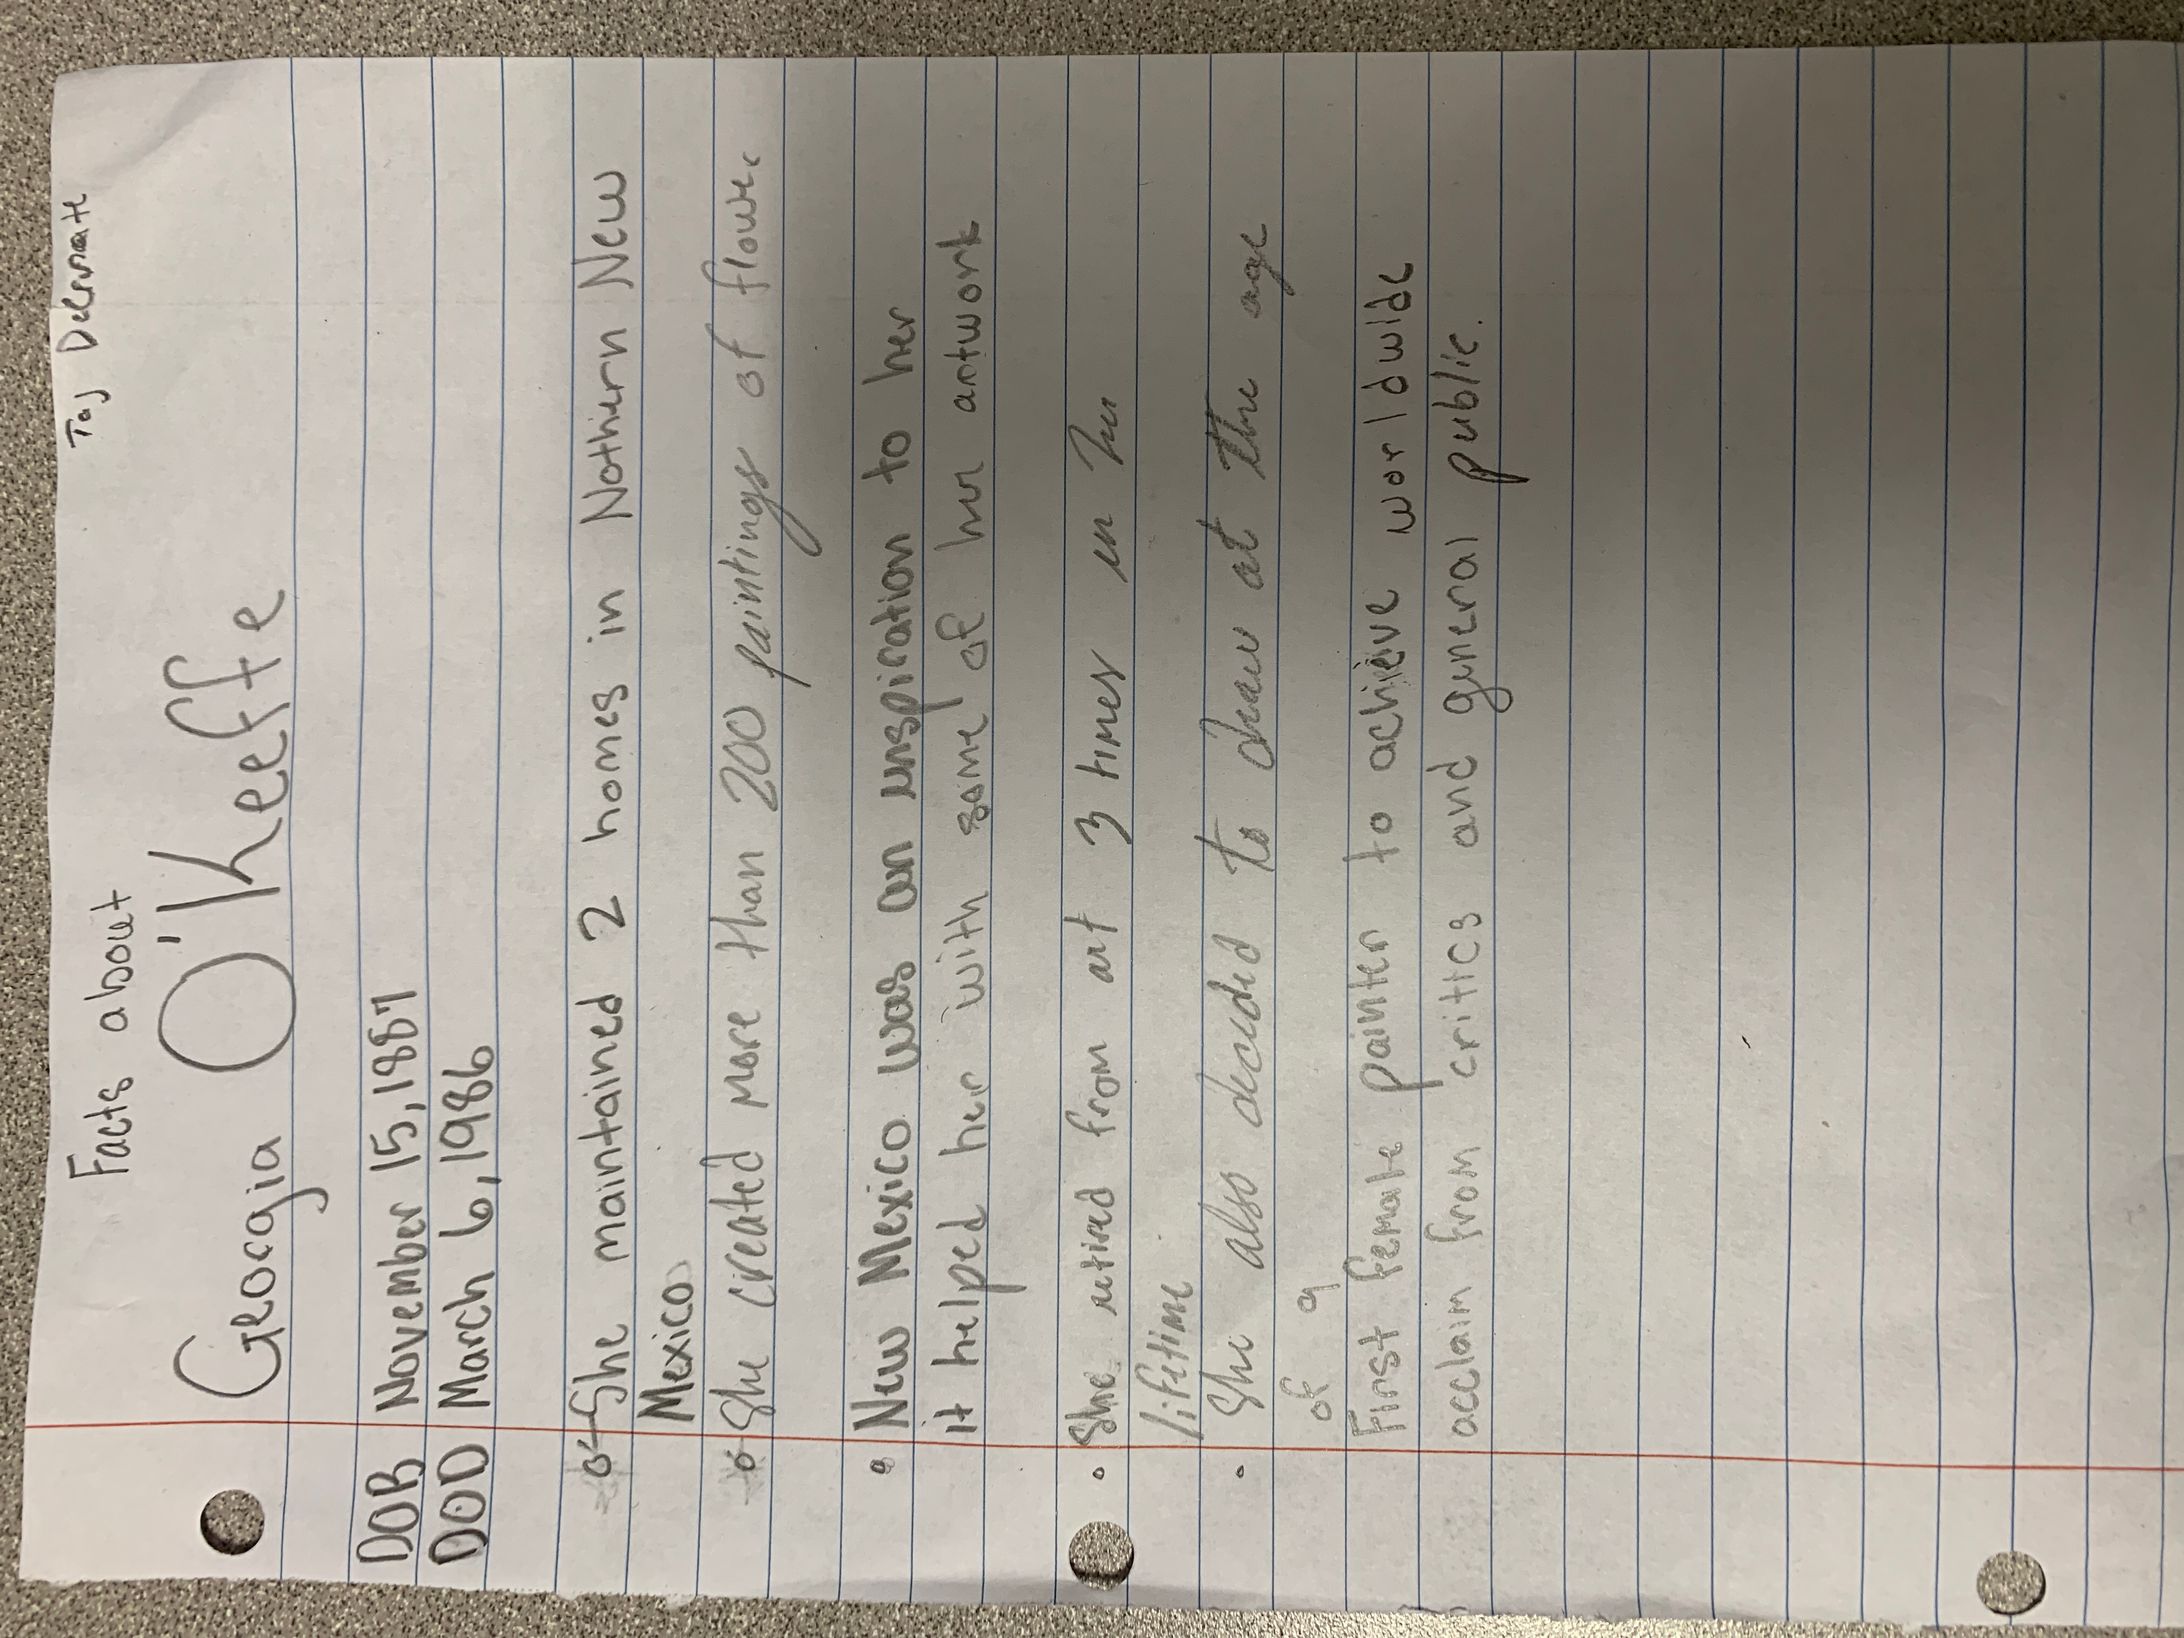 Taj
Facts about
Georgia O'Keeffe
DOB November 15, 1887
DOD March 6, 1986
She maintained 2 homes in Nothern New
Mexico
She created more than 200 paintings of flower
• New Mexico was an inspiration to her
it helped her with some of her artwork
• She retired from art 3 times in her
lifetime
• She also decided to draw at the age
of 9
First female painter to achieve worldwide
acclaim from critics and general public.